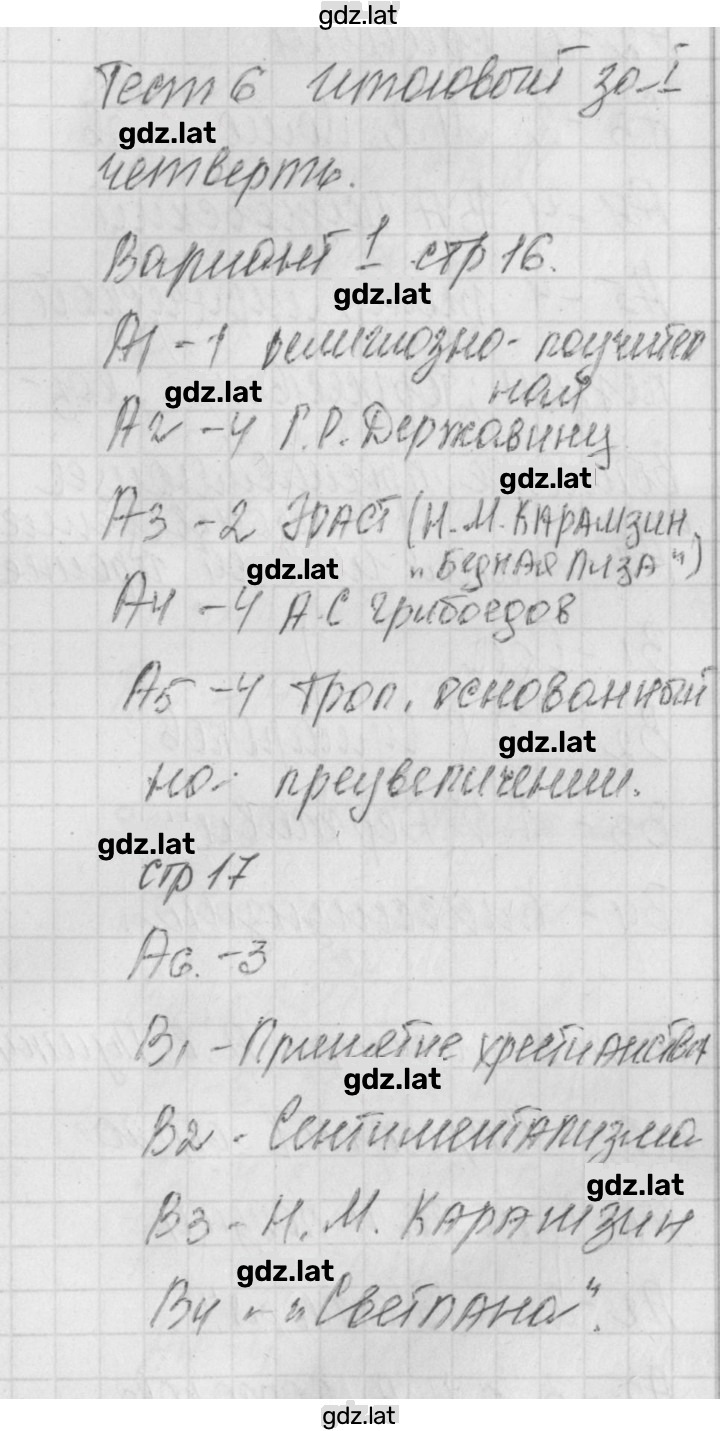 gdz.lat
Тест 6 итоговый за I
gdz.lat
четверть.
Вариант 1 стр 16.
gdz.lat
А1 - 1 религиозно- поучител
ная
gdz.lat
А2 - 4 Г.Р. Державину
gdz.lat
А3 - 2 Эраст (Н.М. Карамзин
„Бедная Лиза")
gdz.lat
А4 - 4 А.С Грибоедов
А5 - 4 Троп, основанный
gdz.lat
на преувеличении.
gdz.lat
стр 17
А6. - 3
В1 - Принятие христианства
gdz.lat
В2 - Сентиментализма
gdz.lat
В3 - Н. М. Карамзин
gdz.lat
В4 - „Светлана".
gdz.lat